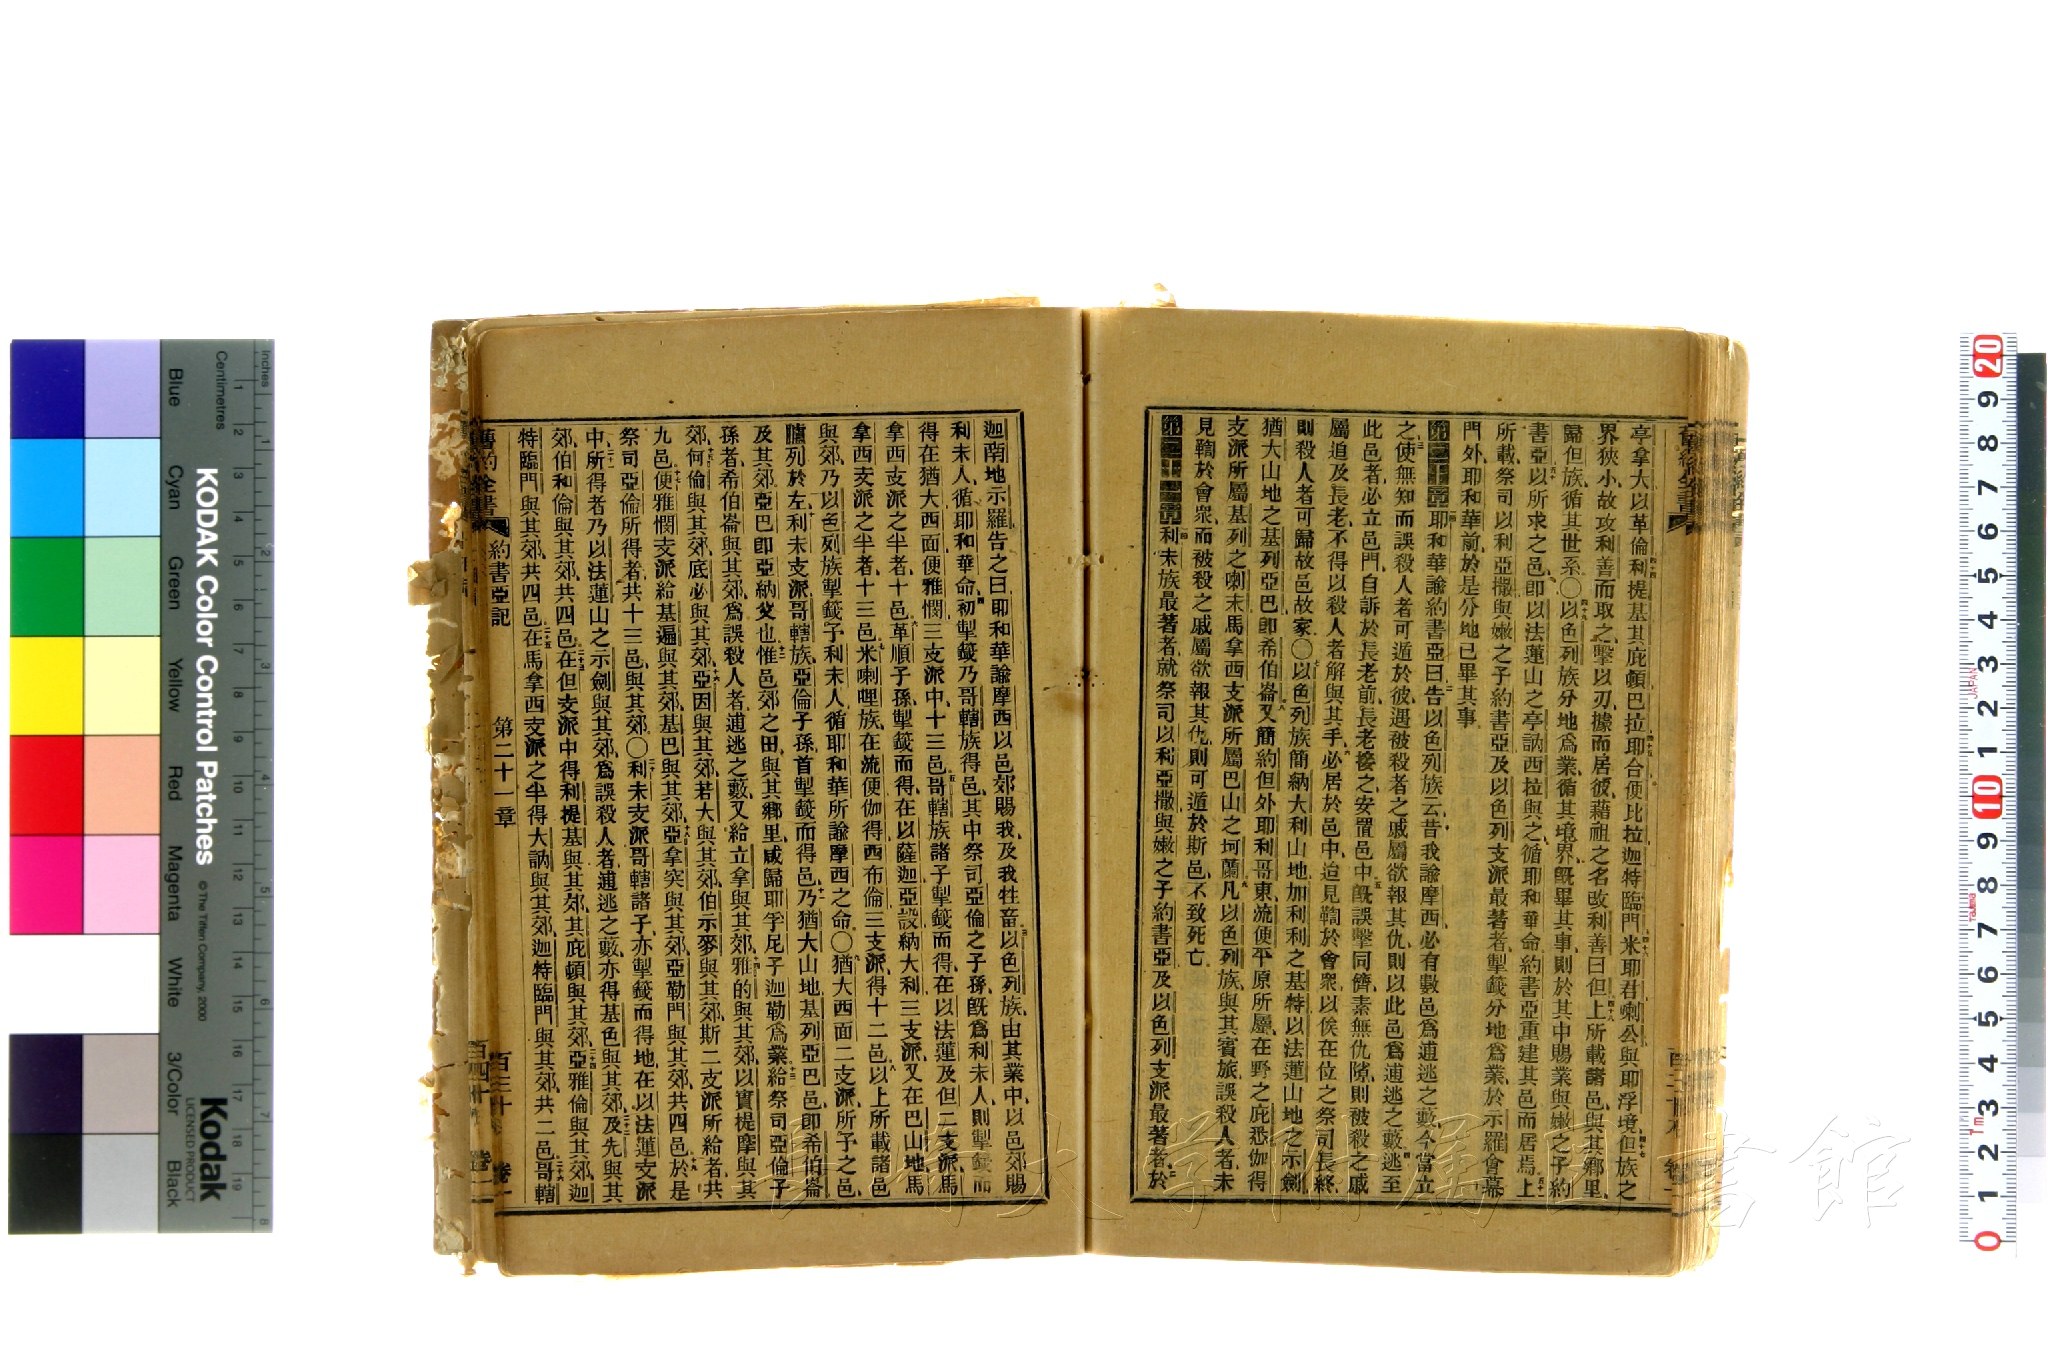 亭拿大以革倫利提基其庇頓巴拉耶合便比拉迦特臨門米耶君喇公與耶浮境但族之
界狹小故攻利善而取之擊以刃據而居彼藉祖之名改利善曰但上所載諸邑與其鄉里
歸但族循其世系〇以色列族分地爲業循其境界旣畢其事則於其中賜業與嫩之子約
書亞以所求之邑卽以法蓮山之亭訥西拉與之循耶和華命約書亞重建其邑而居焉上
所載祭司以利亞撒與嫩之子約書亞及以色列支派最著者掣籤分地爲業於示羅會幕
門外耶和華前於是分地已畢其事
第二十章耶和華諭約書亞曰告以色列族云昔我諭摩西必有數邑爲逋逃之藪今當立
之使無知而誤殺人者可遁於彼遇被殺者之戚屬欲報其仇則以此邑爲逋逃之藪逃至
此邑者必立邑門自訴於長老前長老接之安置邑中旣誤擊同儕素無仇隙則被殺之戚
屬追及長老不得以殺人者解與其手必居於邑中迨見鞫於會衆以俟在位之祭司長終
則殺人者可歸故邑故家〇以色列族簡納大利山地加利利之基特以法蓮山地之示劍
猶大山地之基列亞巴卽希伯崙又簡約但外耶利哥東流便平原所屬在野之庇悉伽得
支派所屬基列之喇末馬拿西支派所屬巴山之坷蘭凡以色列族與其賓旅誤殺人者未
見鞫於會衆而被殺之戚屬欲報其仇則可遁於斯邑不致死亡
第二十一章利未族最著者就祭司以利亞撒與嫩之子約書亞及以色列支派最著者於
迦南地示羅告之曰耶和華諭摩西以邑郊賜我及我牲畜以色列族由其業中以邑郊賜
利未人循耶和華命初掣籤乃哥轄族得邑其中祭司亞倫之子孫旣爲利未人則掣籤而
得在猶大西面便雅憫三支派中十三邑哥轄族諸子掣籤而得在以法蓮及但二支派馬
拿西支派之半者十邑革順子孫掣籤而得在以薩迦亞設納大利三支派又在巴山地馬
拿西支派之半者十三邑米喇哩族在流便伽得西布倫三支派得十二邑以上所載諸邑
與郊乃以色列族掣籤予利未人循耶和華所諭摩西之命〇猶大西面二支派所予之邑
臚列於左利未支派哥轄族亞倫子孫首掣籤而得邑乃猶大山地基列亞巴邑卽希伯崙
及其郊亞巴卽亞納父也惟邑郊之田與其鄉里咸歸耶孚尼子迦勒爲業給祭司亞倫子
孫者希伯崙與其郊爲誤殺人者逋逃之藪又給立拿與其郊雅的與其郊以實提摩與其
郊何倫與其郊底必與其郊亞因與其郊若大與其郊伯示麥與其郊斯二支派所給者共
九邑便雅憫支派給基遍與其郊基巴與其郊亞拿突與其郊亞勒門與其郊共四邑於是
祭司亞倫所得者共十三邑與其郊〇利未支派哥轄諸子亦掣籤而得地在以法蓮支派
中所得者乃以法蓮山之示劍與其郊爲誤殺人者逋逃之藪亦得基色與其郊及先與其
郊伯和倫與其郊共四邑在但支派中得利提基與其郊其庇頓與其郊亞雅倫與其郊迦
特臨門與其郊共四邑在馬拿西支派之半得大訥與其郊迦特臨門與其郊共二邑哥轄
約書亞記 第二十一章 百三十 卷一
舊約全書
百四十
長崎大学附属図書館
KODAK Color Control Patches
© The Tiffen Company, 2000
Kodak
LICENSED PRODUCT
Inches
Centimetres
Blue
Cyan
Green
Yellow
Red
Magenta
White
3/Color
Black
1 2 3 4 5 6 7 8 9 10 11 12 13 14 15 16 17 18 19
1 2 3 4 5 6 7 8
20 9 8 7 6 5 4 3 2 1 10 9 8 7 6 5 4 3 2 1 0
JAPAN
Tajima
1m